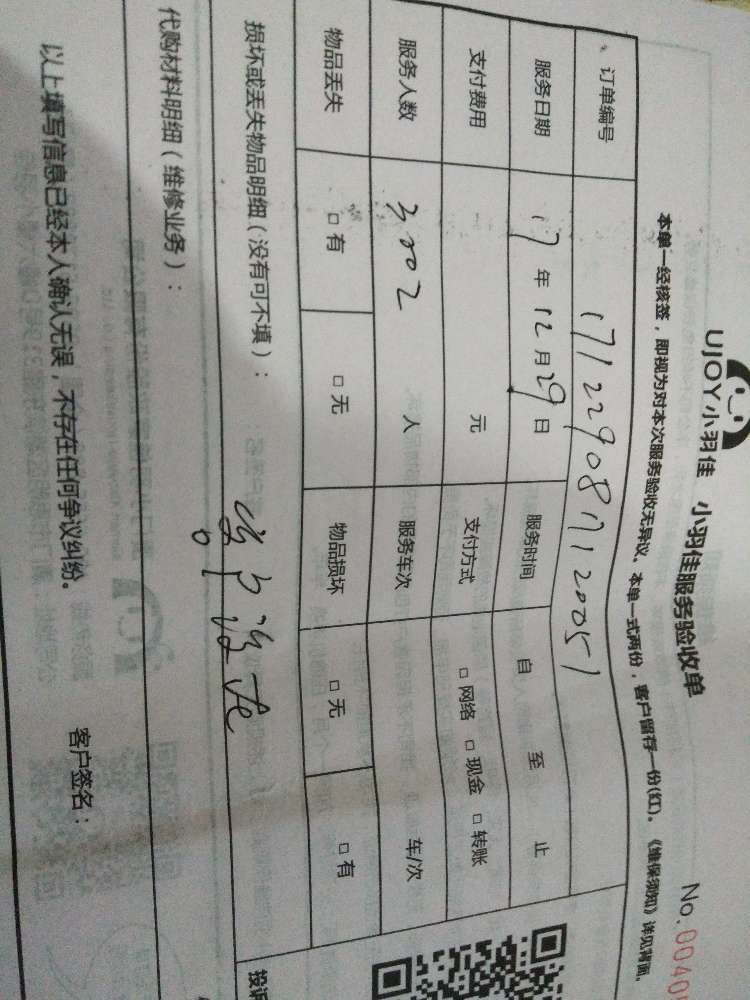 UJOY小羽佳 小羽佳服务验收单
No.0040
本单一经核签，即视为对本次服务验收无异议。本单一式两份，客户留存一份(红)。《维保须知》详见背面。
订单编号 171229087120051
服务日期 17年12月29日 服务时间 自 至 止
支付费用 元 支付方式 □网络 □现金 □转账
服务人数 3002 人 服务车次 车/次
物品丢失 □有 □无 物品损坏 □无 □有
损坏或丢失物品明细（没有可不填）：
代购材料明细（维修业务）：
以上填写信息已经本人确认无误，不存在任何争议纠纷。 客户签名：
投诉